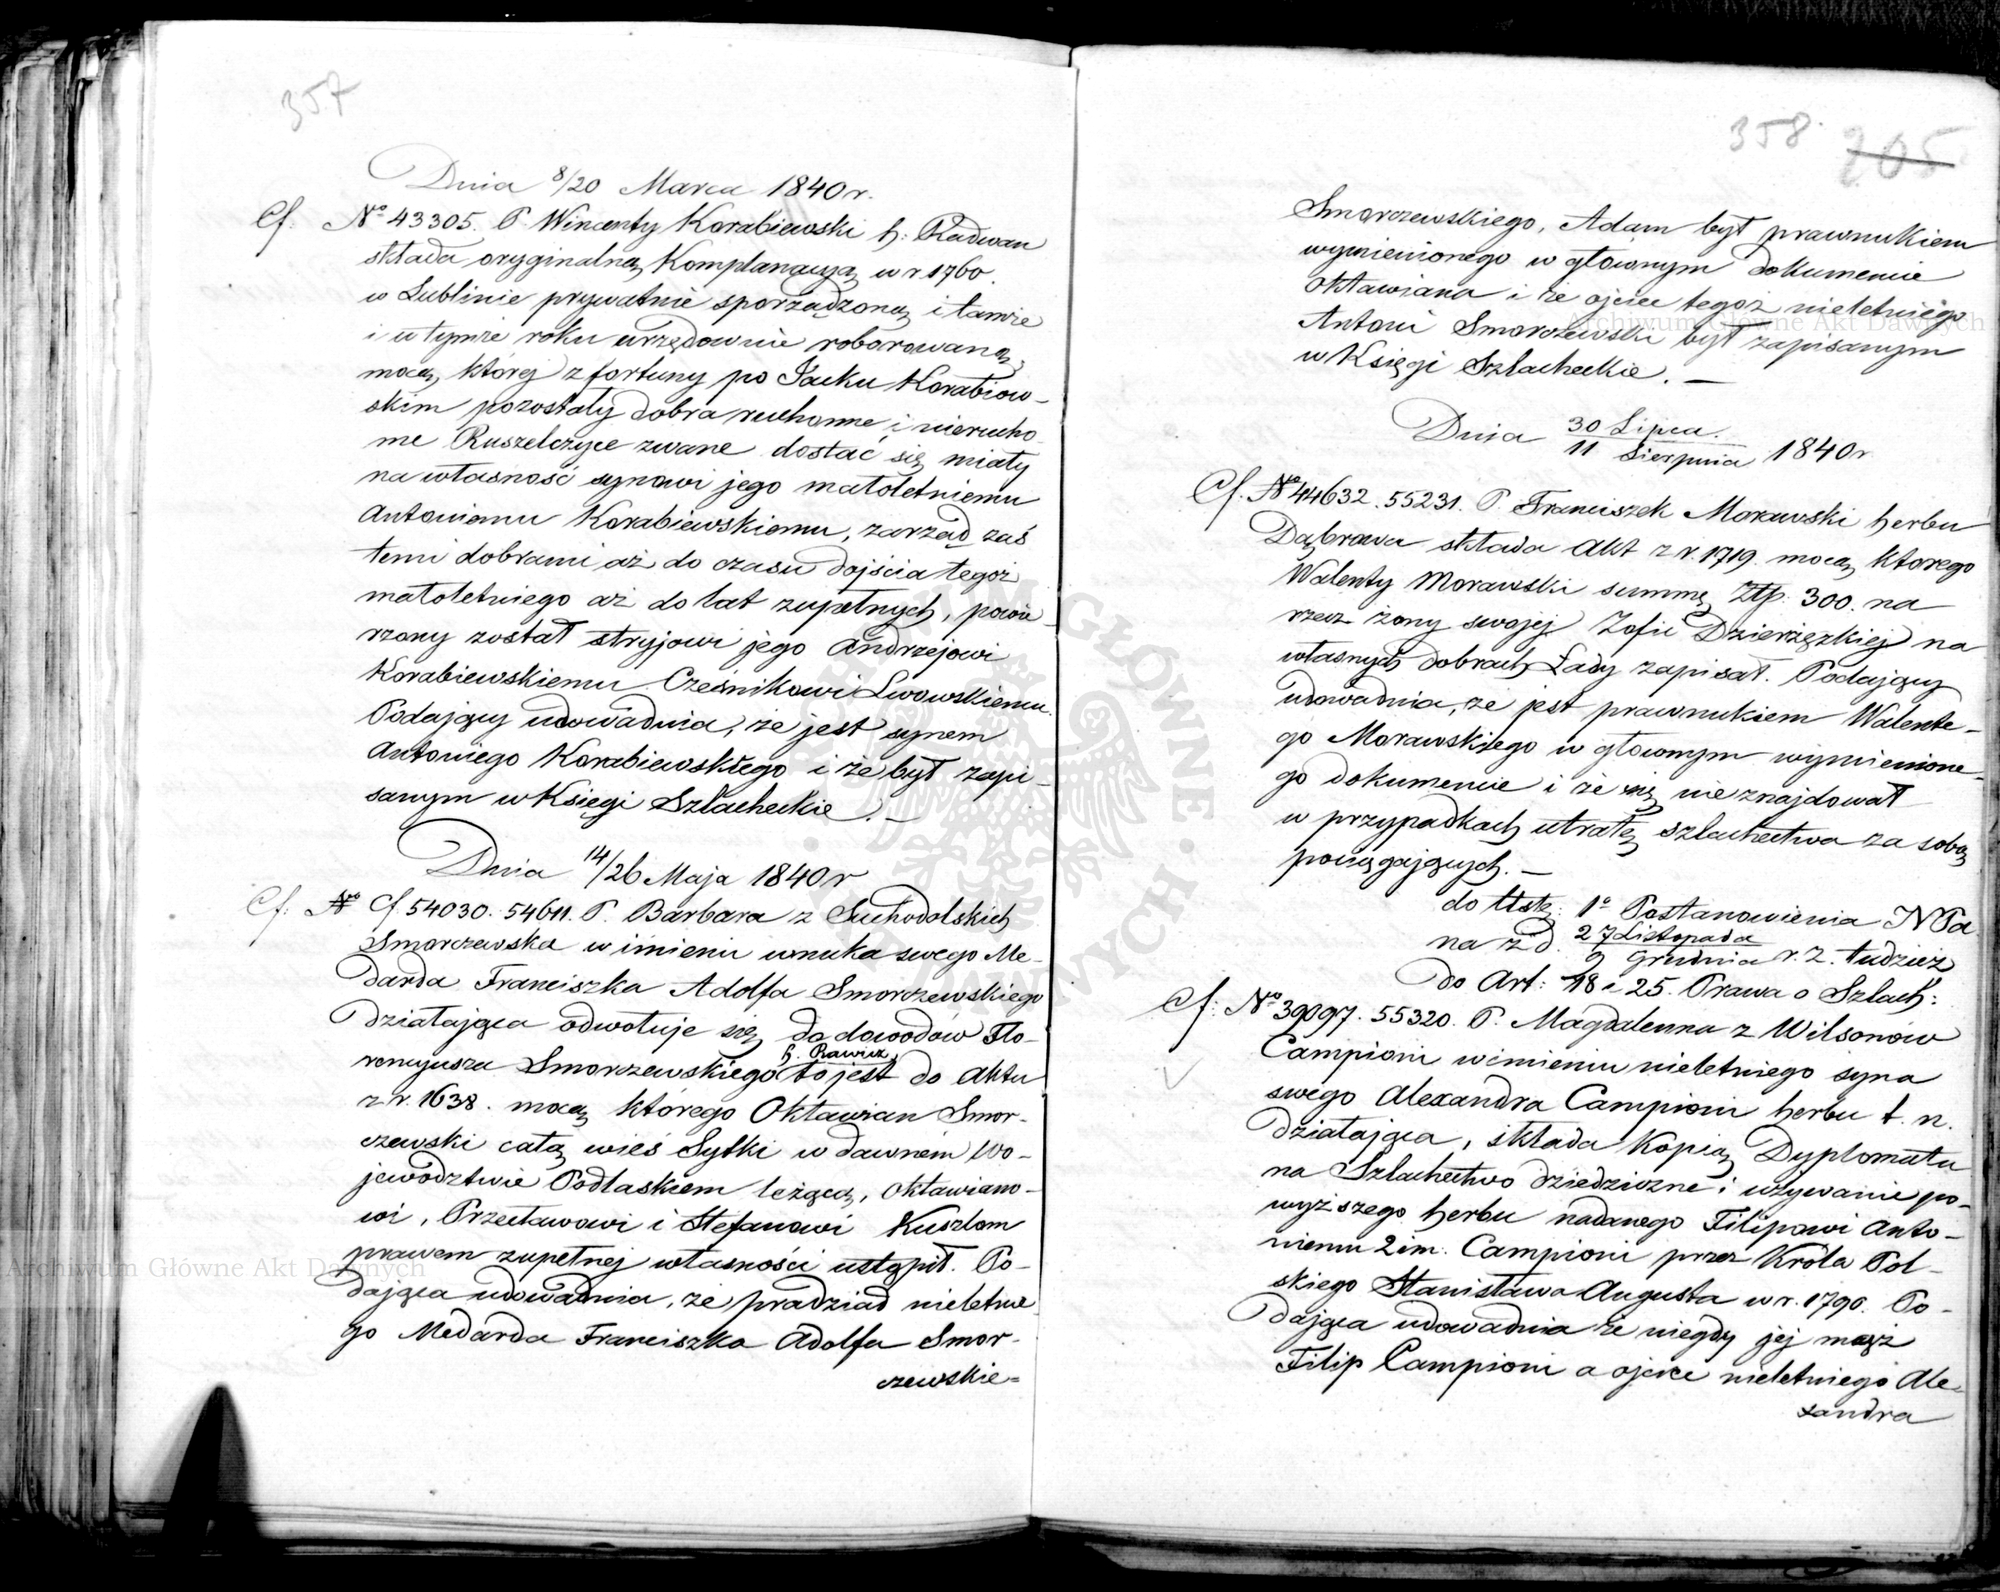 357
Dnia 8/20 Marca 1840 r.
Cf. № 43305. P. Wincenty Korabiewski h: Radwan
składa oryginalną Komplanacyą w r 1760.
w Lublinie prywatnie sporządzoną i tamże
i w tymże roku urzędownie roborowaną,
mocą której z fortuny po Jacku Korabiew-
skim pozostały dobra ruchome i nierucho-
me Ruszelczyce zwane dostać się miały
na własność synowi jego małoletniemu
Antoniemu Korabiewskiemu, zarząd zaś
temi dobrami aż do czasu dojścia tegoż
małoletniego aż do lat zupełnych, powie-
rzony został stryjowi jego Andrzejowi
Korabiewskiemu Cześnikowi Lwowskiemu.
Podający udowadnia, że jest synem
Antoniego Korabiewskiego i że był zapi-
sanym w Księgi Szlacheckie. —
Dnia 14/26 Maja 1840 r
Cf: № Cf. 54030. 54611. P. Barbara z Suchodolskich
Smorczewska w imieniu wnuka swego Me-
darda Franciszka Adolfa Smorczewskiego
działająca odwołuje się do dowodów Flo-
rencyusza Smorczewskiego h. Rawicz to jest do Aktu
z r. 1638. mocą którego Oktawian Smor-
czewski całą wieś Sytki w dawném Wo-
jewództwie Podlaskiem leżącą, Oktawiano-
wi, Przecławowi i Stefanowi Kuszlom
prawem zupełnej własności ustąpił. Po-
dająca udowadnia, że pradziad nieletnie-
go Medarda Franciszka Adolfa Smor-
czewskie=
358. 205
Smorczewskiego, Adam był prawnukiem
wymienionego w głównym dokumencie
Oktawiana i że ojciec tegoż nieletniego
Antoni Smorczewski był zapisanym
w Księgi Szlacheckie. —
Dnia 30 Lipca / 11 Sierpnia 1840 r
Cf. № 44632. 55231. P. Franciszek Morawski herbu
Dąbrowa składa Akt z r. 1719. mocą ktorego
Walenty Morawski summę Złp. 300. na
rzecz żony swojej Zofii Dzierżęzkiej na
własnych dobrach Łady zapisał. Podający
udowadnia, że jest prawnukiem Walente-
go Morawskiego w głównym wymienione-
go dokumencie i że się nie znajdował
w przypadkach utratę szlachectwa za sobą
pociągających. —
do Ustę: 1° Postanowienia JN Pa
na z d. 27 Listopada / 9 Grudnia r. z. tudzież
do Art: 18 i 25. Prawa o Szlach:
Cf: № 39097. 55320. P. Magdalenna z Wilsonów
Campioni w imieniu nieletniego syna
swego Alexandra Campioni herbu t. n.
działająca, składa Kopią Dyplomatu
na Szlachectwo dziedziczne i używanie po-
wyższego herbu nadanego Filipowi Anto-
niemu 2 im. Campioni przez Króla Pol-
skiego Stanisława Augusta w r. 1790. Po-
dająca udowadnia że niegdy jej mąż
Filip Campioni a ojciec nieletniego Ale-
xandra
Archiwum Główne Akt Dawnych
Archiwum Główne Akt Dawnych
ARCHIWUM GŁÓWNE AKT DAWNYCH